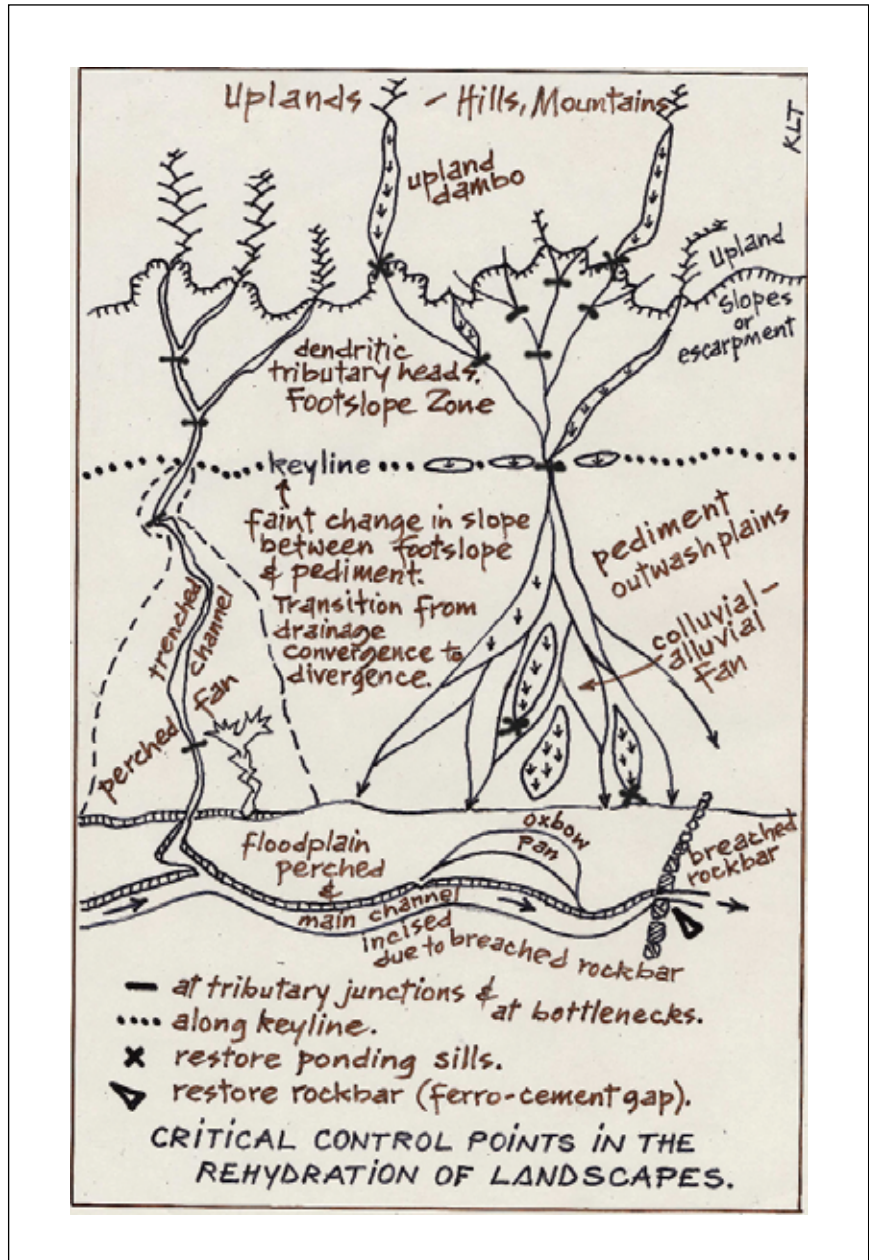 Uplands - Hills, Mountains
KLT
upland
dambo
Upland
slopes
or
escarpment
dendritic
tributary heads.
Footslope Zone
keyline
faint change in slope
between footslope
& pediment.
Transition from
drainage
convergence to
divergence.
pediment
outwash plains
colluvial-
alluvial
fan
trenched
channel
perched fan
floodplain
perched
&
main channel
incised
due to breached rockbar
oxbow
pan
breached
rockbar
at tributary junctions & at bottlenecks.
along keyline.
restore ponding sills.
restore rockbar (ferro-cement gap).
CRITICAL CONTROL POINTS IN THE
REHYDRATION OF LANDSCAPES.